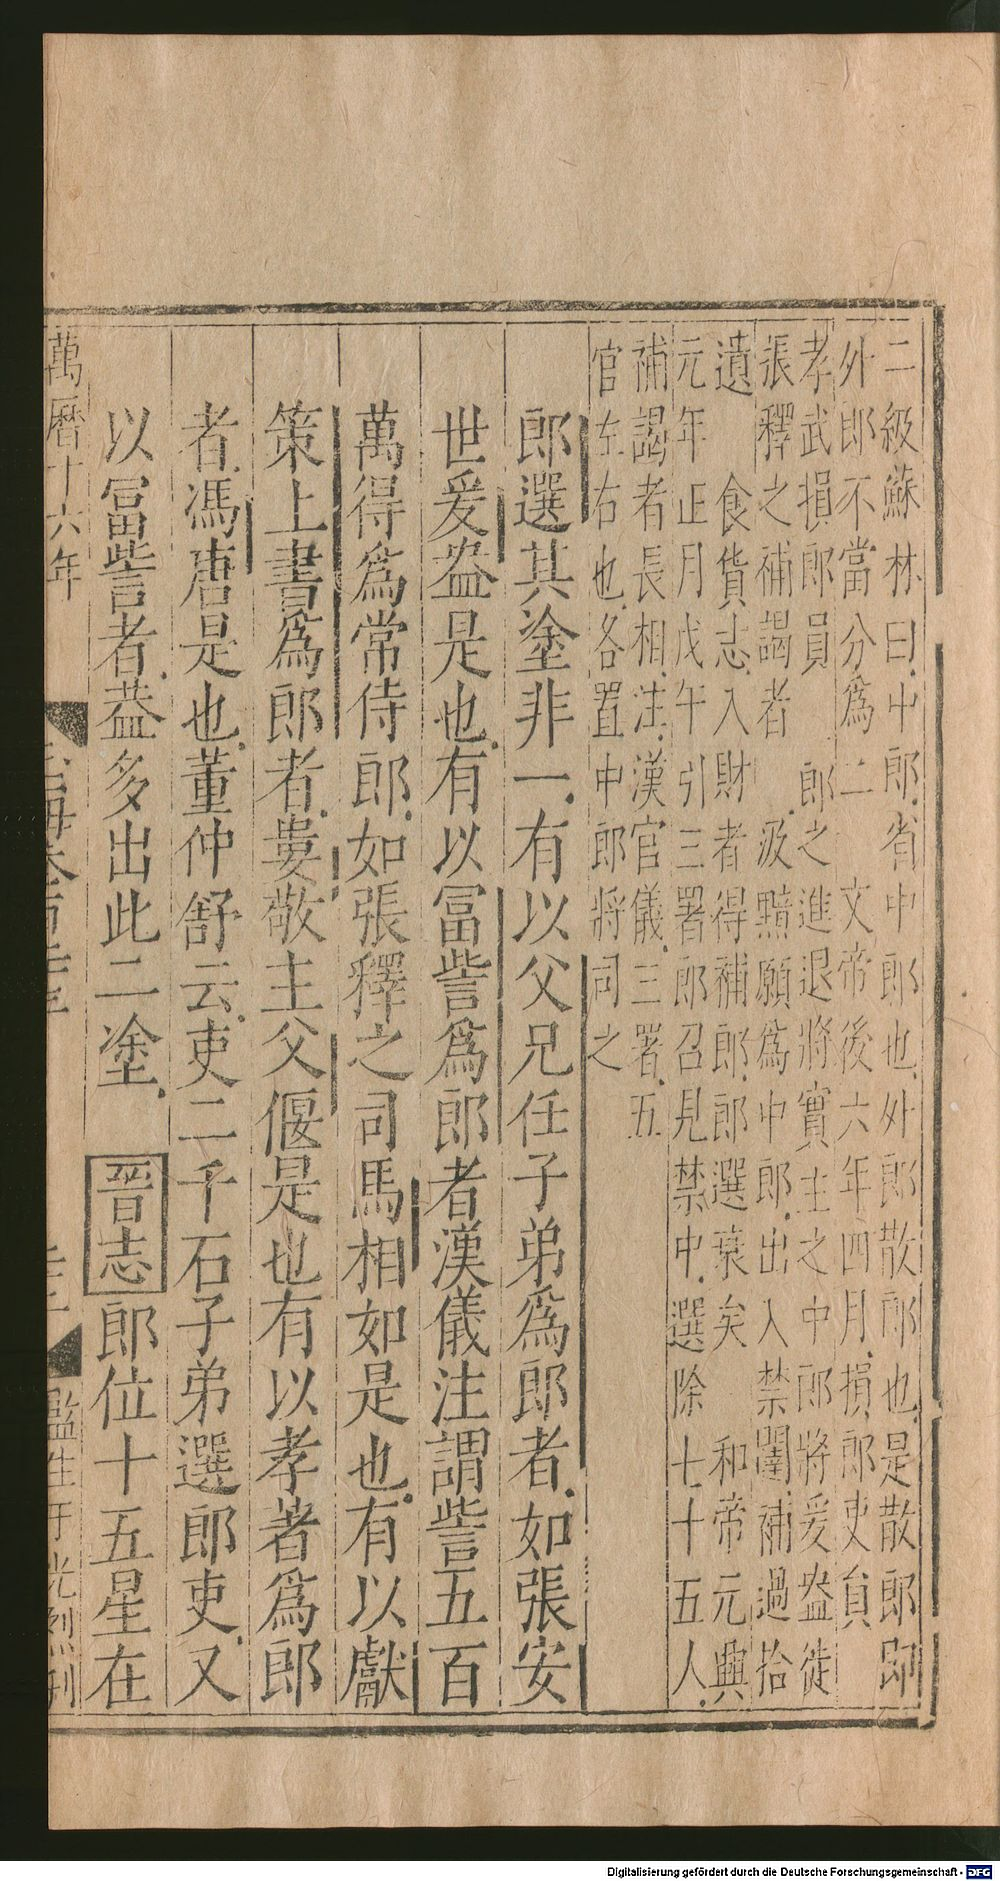 二級蘇林曰中郎省中郎也外郎散郎也是散郎即
外郎不當分爲二　文帝後六年四月損郎吏員
孝武損郎員　郎之進退將實主之中郎將爰盎徙
張釋之補謁者　汲黯願爲中郎出入禁闥補過拾
遺　食貨志入財者得補郎郎選衰矣　和帝元興
元年正月戊午引三署郎召見禁中選除七十五人
補謁者長相注漢官儀三署五
官左右也各置中郎將司之
郎選其塗非一有以父兄任子弟爲郎者如張安
世爰盎是也有以富訾爲郎者漢儀注謂訾五百
萬得爲常侍郎如張釋之司馬相如是也有以獻
策上書爲郎者婁敬主父偃是也有以孝著爲郎
者馮唐是也董仲舒云吏二千石子弟選郎吏又
以富訾者葢多出此二塗晉志郎位十五星在
萬曆十六年
監生于光烈刊
Digitalisierung gefördert durch die Deutsche Forschungsgemeinschaft - DFG